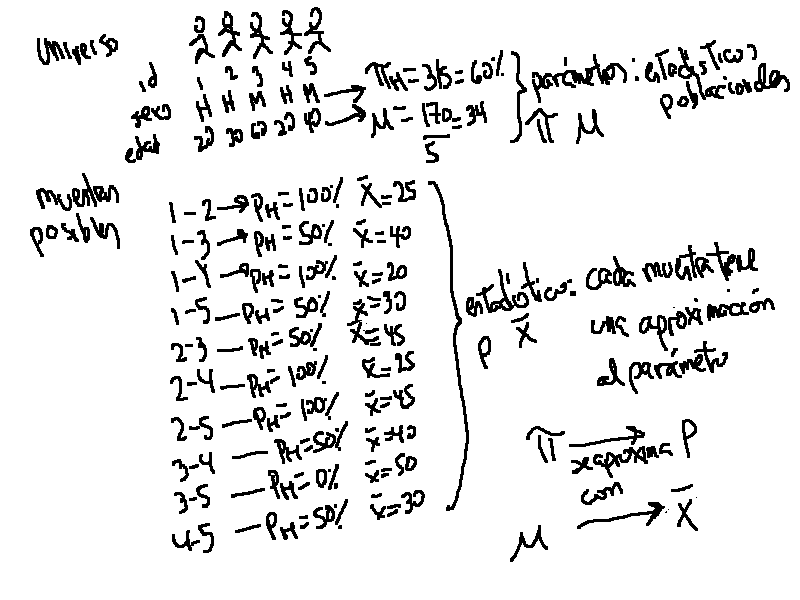 Universo
id 1 2 3 4 5
sexo H H M H M → π_H = 3/5 = 60%
edad 20 30 60 20 40 → μ = 170/5 = 34
parámetros: estadísticos
poblacionales
π μ
muestras
posibles
1-2 → P_H = 100% x̄ = 25
1-3 → P_H = 50% x̄ = 40
1-4 → P_H = 100% x̄ = 20
1-5 — P_H = 50% x̄ = 30
2-3 — P_H = 50% x̄ = 45
2-4 — P_H = 100% x̄ = 25
2-5 — P_H = 100% x̄ = 45
3-4 — P_H = 50% x̄ = 40
3-5 — P_H = 0% x̄ = 50
4-5 — P_H = 50% x̄ = 30
estadístico: cada muestra tiene
p x̄ una aproximación
al parámetro
π → p
se aproxima
con
μ → x̄